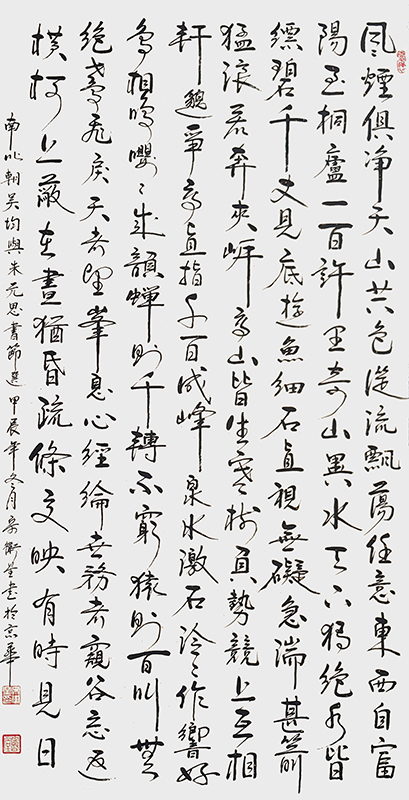 風煙俱净天山共色從流飄蕩任意東西自富
陽至桐廬一百許里奇山異水天下獨絕水皆
縹碧千丈見底遊魚細石直視無礙急湍甚箭
猛浪若奔夾岸高山皆生寒樹負勢競上互相
軒邈爭高直指千百成峰泉水激石泠〻作響好
鳥相鳴嚶〻成韻蟬則千轉不窮猿則百叫無
絕鳶飛戾天者望峯息心經綸世務者窺谷忘返
橫柯上蔽在晝猶昏疏條交映有時見日
南北朝吳均與朱元思書節選甲辰年冬月衛書於京華